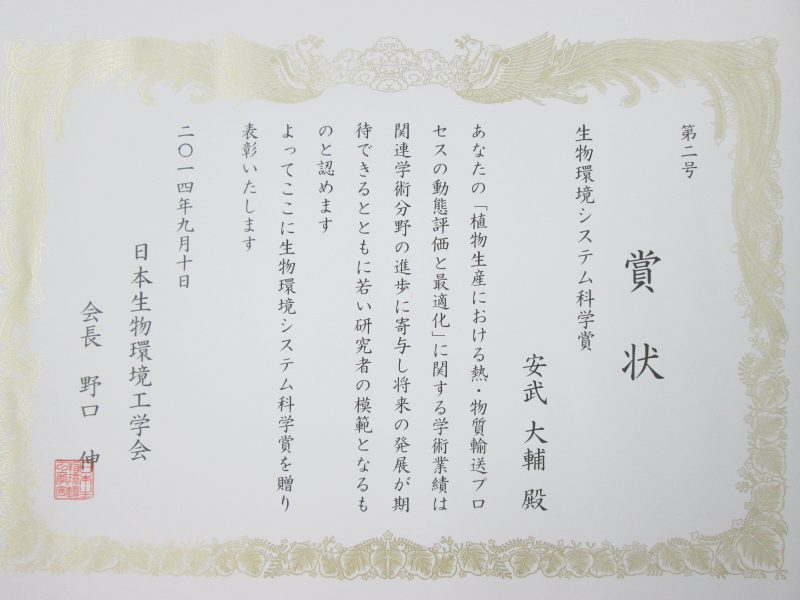 第二号
賞状
生物環境システム科学賞
安武 大輔 殿
あなたの「植物生産における熱・物質輸送プロ
セスの動態評価と最適化」に関する学術業績は
関連学術分野の進歩に寄与し将来の発展が期
待できるとともに若い研究者の模範となるも
のと認めます
よってここに生物環境システム科学賞を贈り
表彰いたします
二〇一四年九月十日
日本生物環境工学会
会長 野口 伸